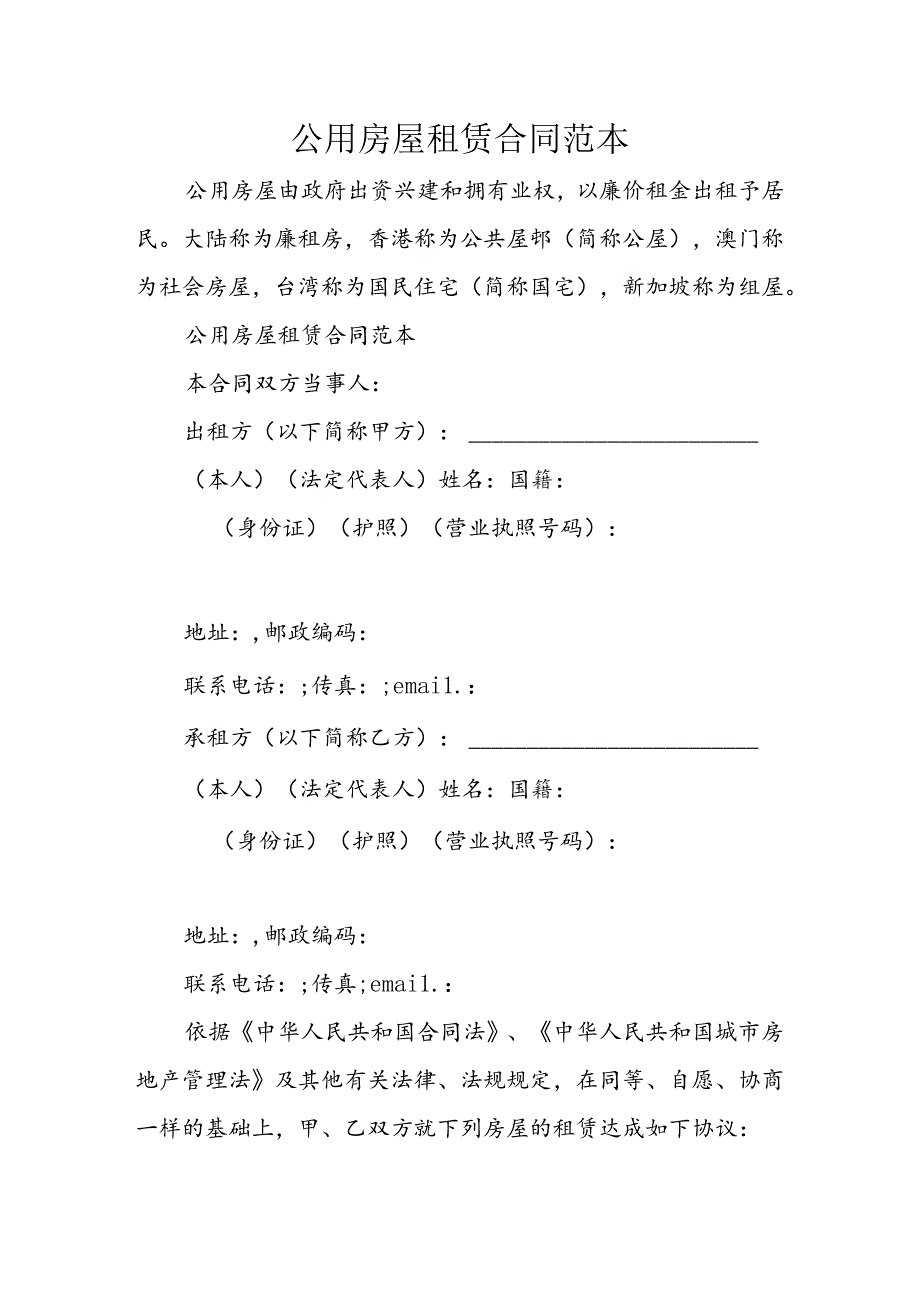 公用房屋租赁合同范本
公用房屋由政府出资兴建和拥有业权，以廉价租金出租予居
民。大陆称为廉租房，香港称为公共屋邨（简称公屋），澳门称
为社会房屋，台湾称为国民住宅（简称国宅），新加坡称为组屋。
公用房屋租赁合同范本
本合同双方当事人：
出租方（以下简称甲方）： _________________________
（本人）（法定代表人）姓名：国籍：
（身份证）（护照）（营业执照号码）：
地址：,邮政编码：
联系电话：;传真：;email.：
承租方（以下简称乙方）： _________________________
（本人）（法定代表人）姓名：国籍：
（身份证）（护照）（营业执照号码）：
地址：,邮政编码：
联系电话：;传真;email.：
依据《中华人民共和国合同法》、《中华人民共和国城市房
地产管理法》及其他有关法律、法规规定，在同等、自愿、协商
一样的基础上，甲、乙双方就下列房屋的租赁达成如下协议：